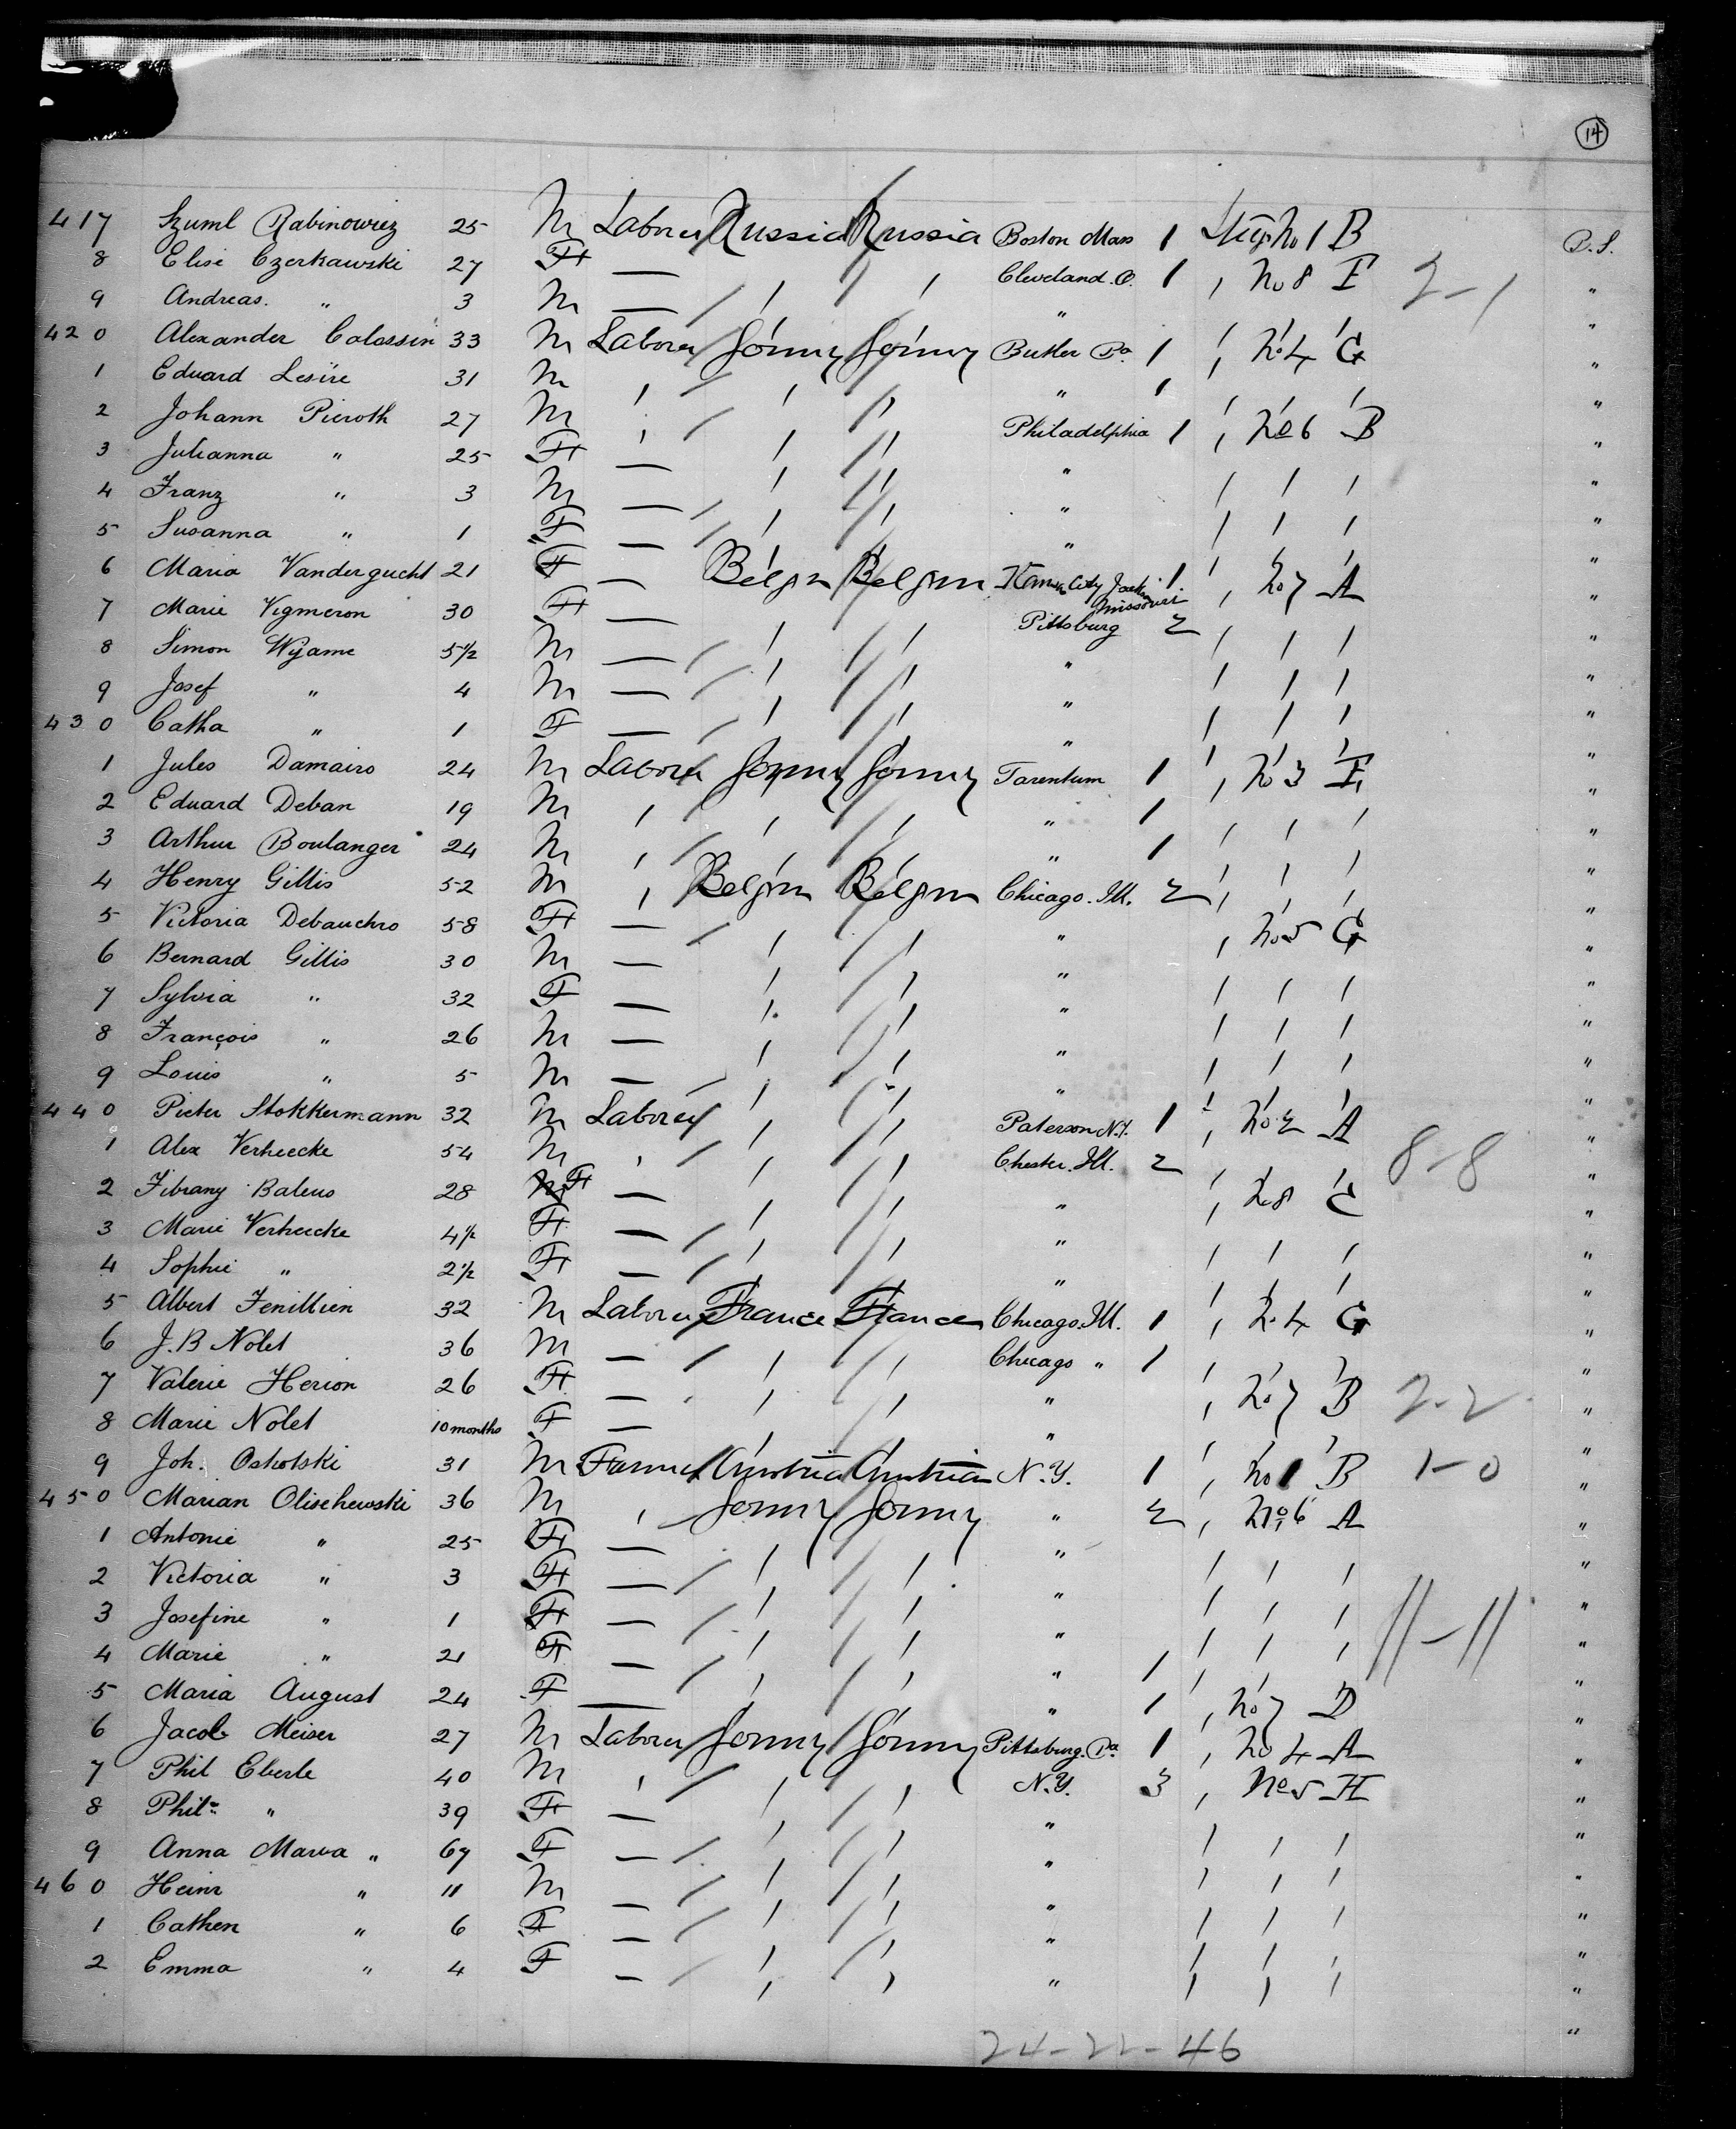 14
417 Szuml Rabinowiez 25 M Laborer Russia Russia Boston Mass 1 No 1 B P.S.
8 Elise Czerkawski 27 F — ' ' Cleveland. O. 1 ' No 8 F 2-1 "
9 Andreas. " 3 M — ' ' " "
420 Alexander Colassin 33 M Laborer Germy Germy Butler Pa. 1 ' No 4 G "
1 Eduard Lesire 31 M ' ' ' " 1 ' ' ' "
2 Johann Pieroth 27 M ' ' ' Philadelphia 1 ' No 6 B "
3 Julianna " 25 F — ' ' " "
4 Franz " 3 M — ' ' " ' ' ' "
5 Susanna " 1 F — ' ' " ' ' ' "
6 Maria Vandergucht 21 F — Belgm Belgm Kansas City Missouri 1 ' No 7 A "
7 Marie Vigmeron 30 F — ' ' Pittsburg 2 ' ' ' "
8 Simon Wyame 5½ M — ' ' " ' ' ' "
9 Josef " 4 M — ' ' " ' ' ' "
430 Catha " 1 F — ' ' " ' ' ' "
1 Jules Damairo 24 M Laborer Germy Germy Tarentum 1 ' No 3 F "
2 Eduard Deban 19 M ' ' ' " 1 ' ' ' "
3 Arthur Boulanger 24 M ' ' ' " 1 ' ' ' "
4 Henry Gillis 52 M ' Belgm Belgm Chicago. Ill. 2 ' ' ' "
5 Victoria Debauchro 58 F — ' ' " ' No 5 G "
6 Bernard Gillis 30 M — ' ' " ' ' ' "
7 Sylvia " 32 F — ' ' " ' ' ' "
8 François " 26 M — ' ' " ' ' ' "
9 Louis " 5 M — ' ' " ' ' ' "
440 Pieter Stokkermann 32 M Laborer ' ' Paterson N.J. 1 ' No 2 A "
1 Alex Verheecke 54 M ' ' ' Chester. Ill. 2 ' 8-8 "
2 Baleus 28 F — ' ' " ' No 8 C "
3 Marie Verheecke 4½ F — ' ' " ' ' ' "
4 Sophie " 2½ F — ' ' " ' ' ' "
5 Albert Fenillien 32 M Laborer France France Chicago. Ill. 1 ' No 4 G "
6 J.B Nolet 36 M — ' ' Chicago " 1 ' ' ' "
7 Valerie Herion 26 F — ' ' " ' No 7 B 2-2 "
8 Marie Nolet 10 months F — ' ' " "
9 Joh. Osholski 31 M Farmer Austria Austria N.Y. 1 ' No 1 B 1-0 "
450 Marian Olischewski 36 M ' Germy Germy " 2 ' No 6 A "
1 Antonie " 25 F — ' ' " ' ' ' "
2 Victoria " 3 F — ' ' " ' ' ' "
3 Josefine " 1 F — ' ' " ' ' ' 11-11 "
4 Marie " 21 F — ' ' " 1 ' ' ' "
5 Maria August 24 F — ' ' " 1 ' No 7 D "
6 Jacob Meiser 27 M Laborer Germy Germy Pittsburg. Pa. 1 ' No 4 A "
7 Phil Eberle 40 M ' ' ' N.Y. 3 ' No 5 H "
8 Phil. " 39 F — ' ' " ' ' ' "
9 Anna Maria " 67 F — ' ' " ' ' ' "
460 Heinr " 11 M — ' ' " ' ' ' "
1 Cathen " 6 F — ' ' " ' ' ' "
2 Emma " 4 F — ' ' " ' ' ' "
24-22-46